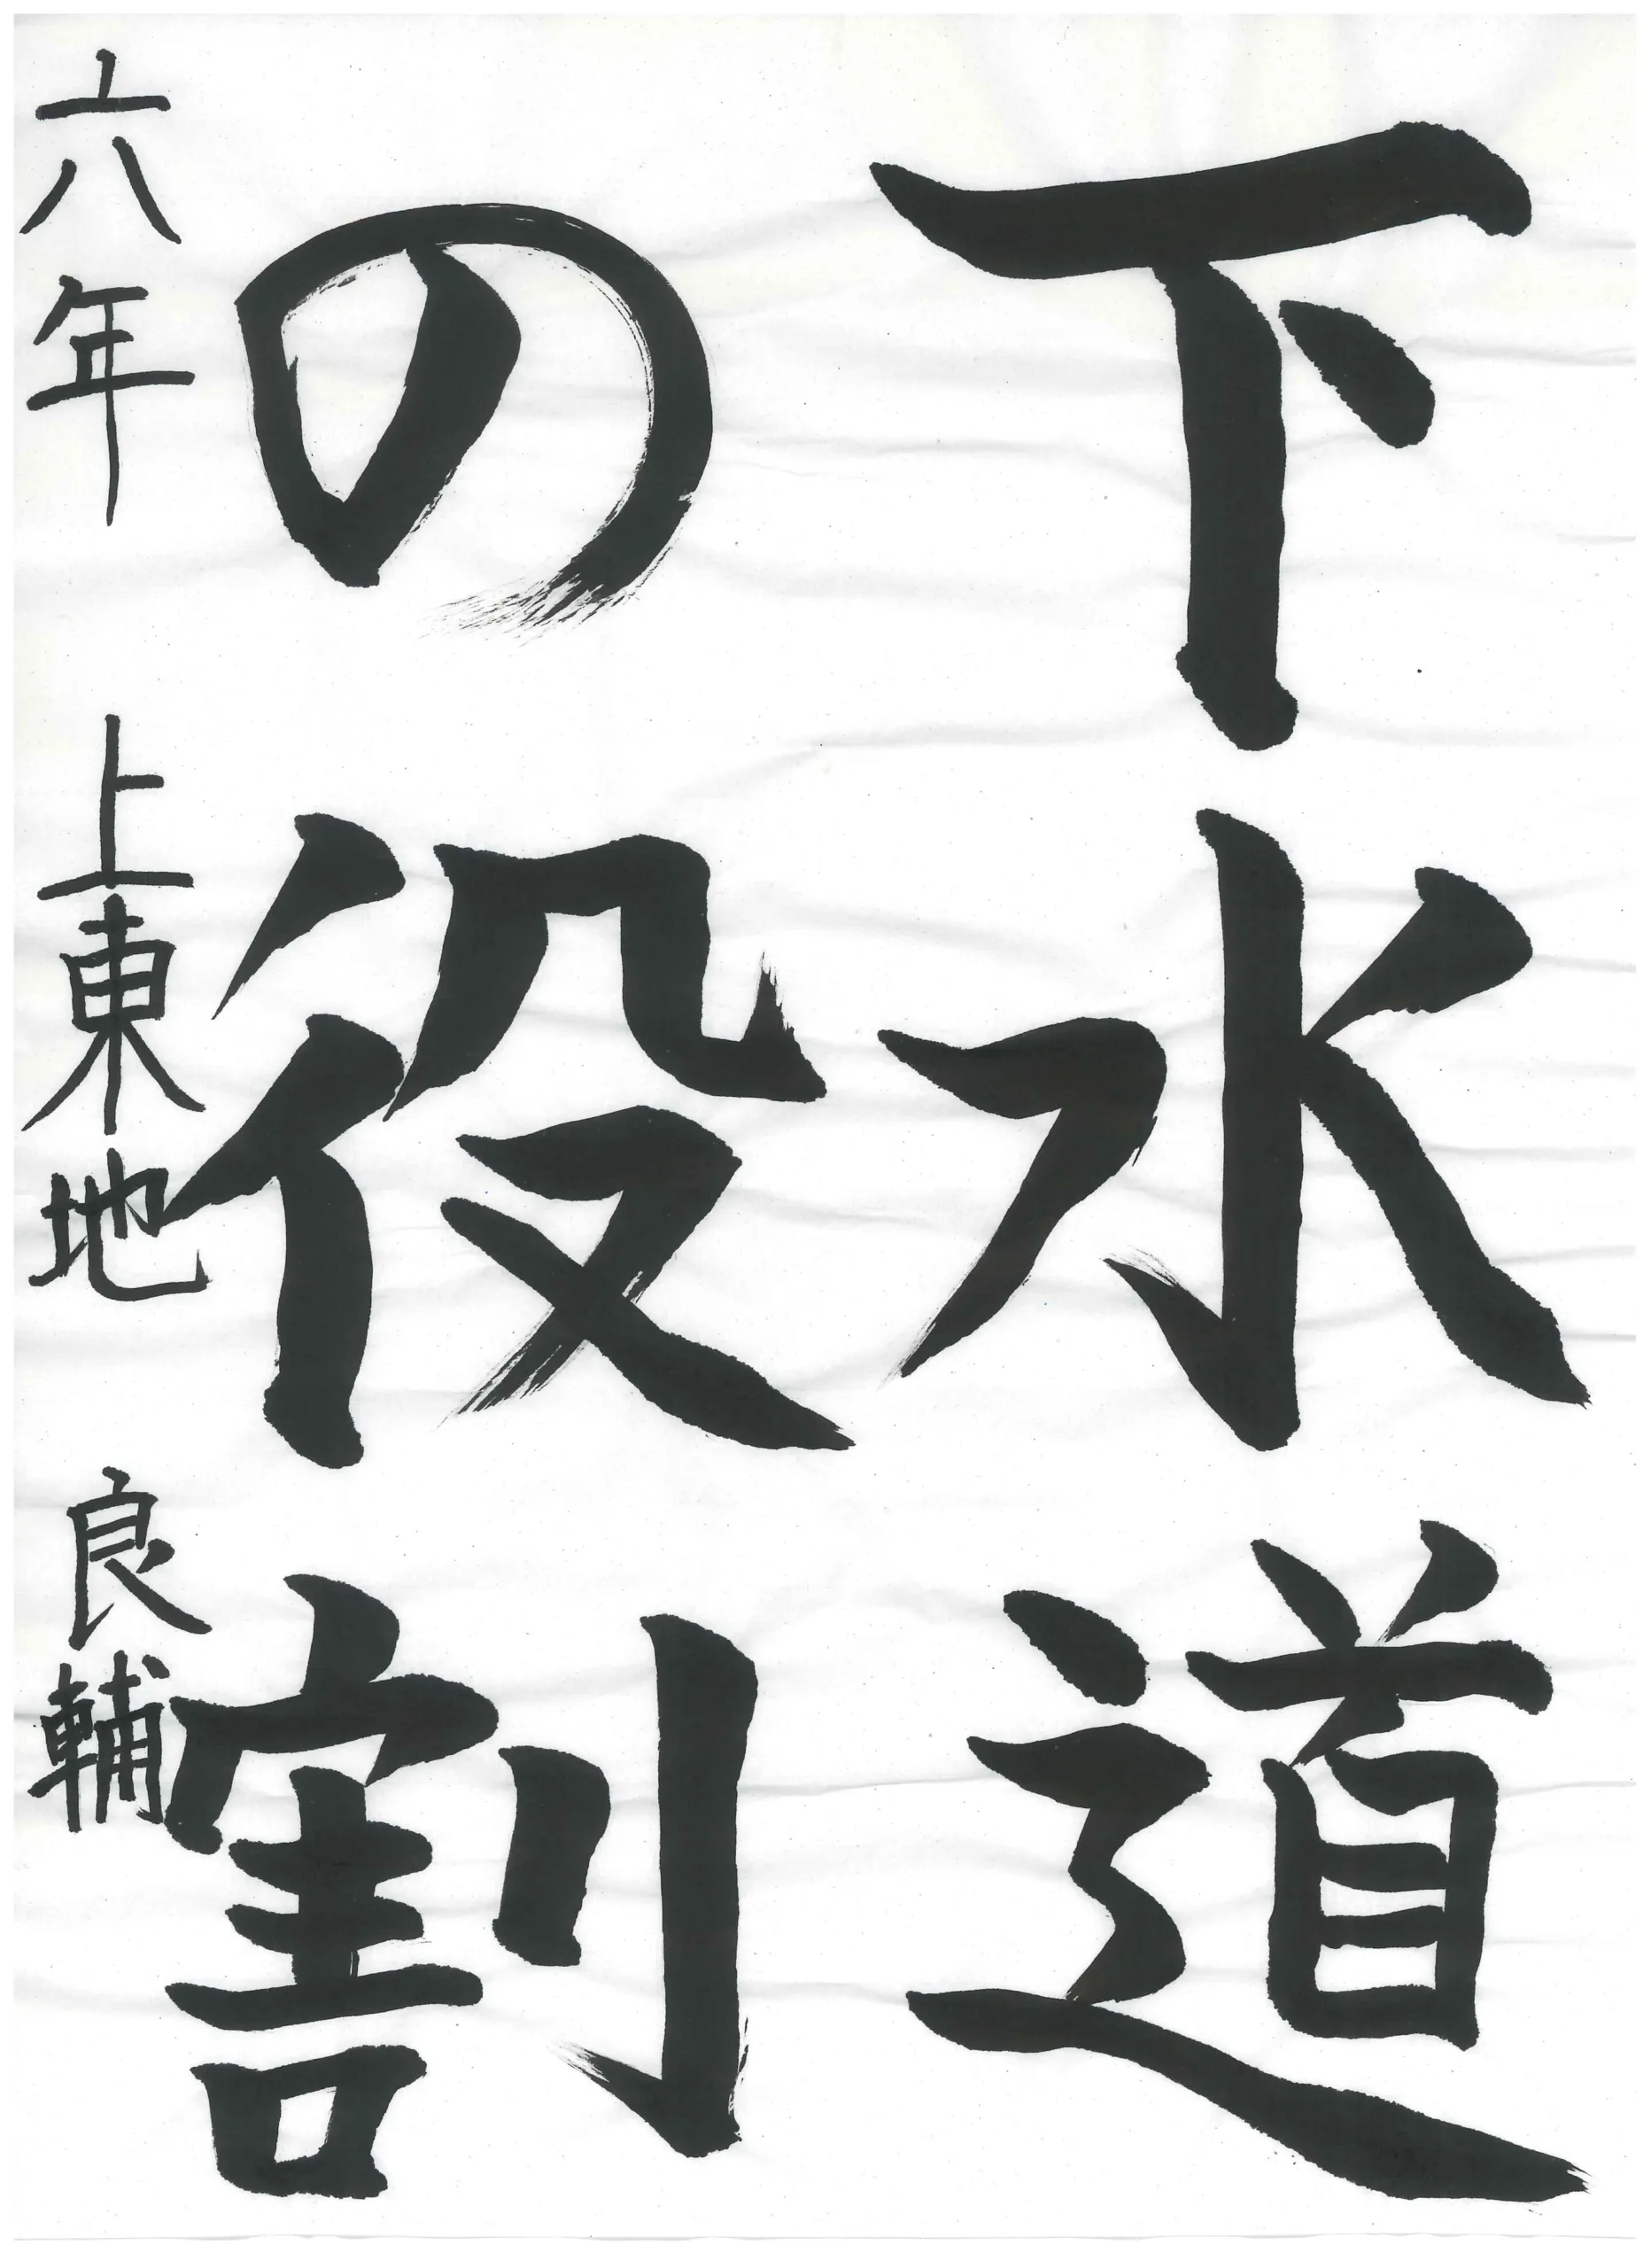 下水道
の役割
六年 上東地 良輔